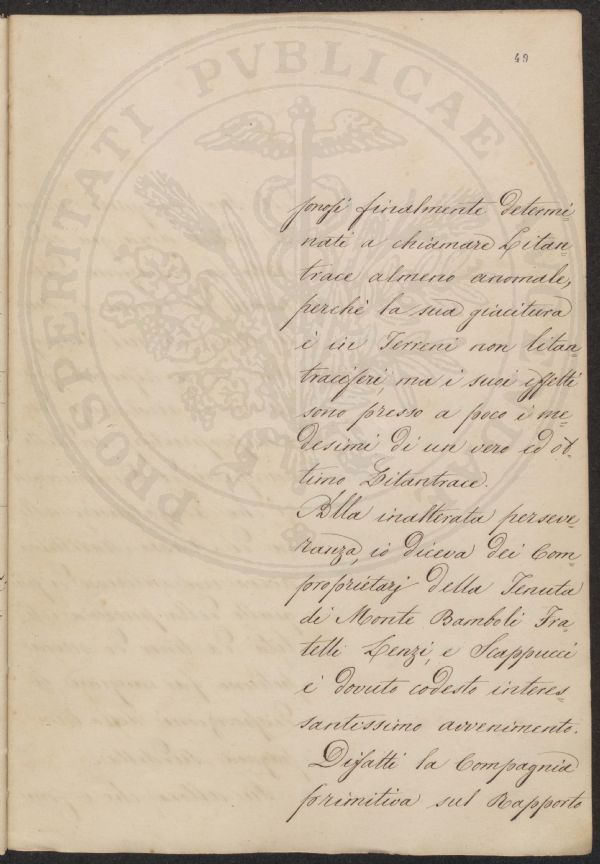 49
PROSPERITATI PVBLICAE
sonosi finalmente determi=
nati a chiamare Litan=
trace almeno anomale,
perchè la sua giacitura
è in Terreni non litan=
traciferi, ma i suoi effetti
sono presso a poco i me=
desimi di un vero ed ot=
timo Litantrace.
Alla inalterata perseve=
ranza, io diceva dei Com=
proprietarj della Tenuta
di Monte Bamboli Fra=
telli Lenzi, e Scappucci
è dovuto codesto interes=
santissimo avvenimento.
Difatti la Compagnia
primitiva sul Rapporto